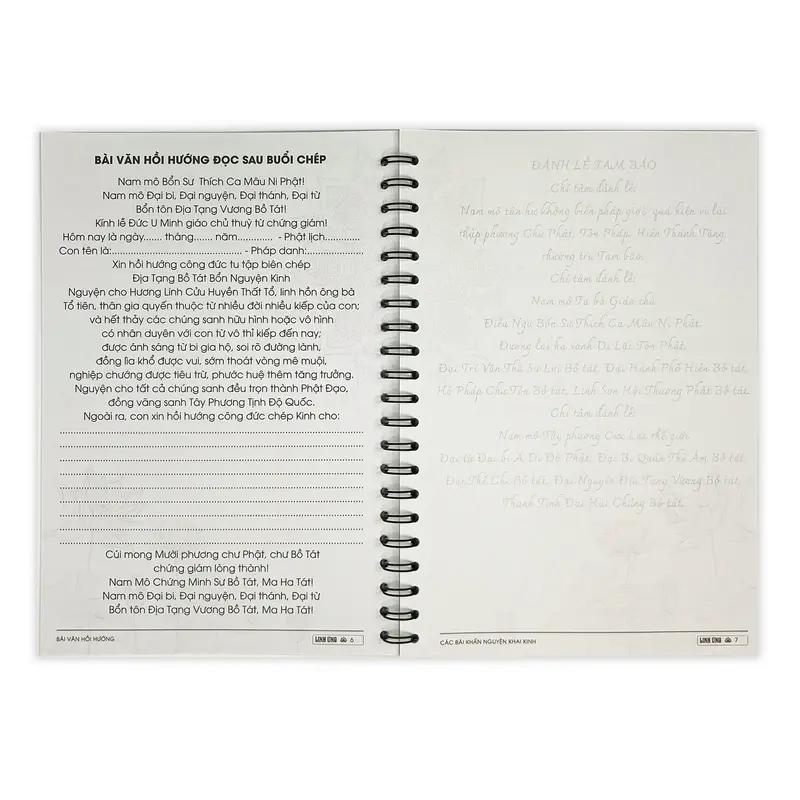 BÀI VĂN HỒI HƯỚNG ĐỌC SAU BUỔI CHÉP
Nam mô Bổn Sư Thích Ca Mâu Ni Phật!
Nam mô Đại bi, Đại nguyện, Đại thánh, Đại từ
Bổn tôn Địa Tạng Vương Bồ Tát!
Kính lễ Đức U Minh giáo chủ thuỳ từ chứng giám!
Hôm nay là ngày...... tháng....... năm............. - Phật lịch.............
Con tên là:................................................ - Pháp danh:.....................
Xin hồi hướng công đức tu tập biên chép
Địa Tạng Bồ Tát Bổn Nguyện Kinh
Nguyện cho Hương Linh Cửu Huyền Thất Tổ, linh hồn ông bà
Tổ tiên, thân gia quyến thuộc từ nhiều đời nhiều kiếp của con;
và hết thảy các chúng sanh hữu hình hoặc vô hình
có nhân duyên với con từ vô thỉ kiếp đến nay;
được ánh sáng từ bi gia hộ, soi rõ đường lành,
đồng lìa khổ được vui, sớm thoát vòng mê muội,
nghiệp chướng được tiêu trừ, phước huệ thêm tăng trưởng.
Nguyện cho tất cả chúng sanh đều trọn thành Phật Đạo,
đồng vãng sanh Tây Phương Tịnh Độ Quốc.
Ngoài ra, con xin hồi hướng công đức chép Kinh cho:
Cúi mong Mười phương chư Phật, chư Bồ Tát
chứng giám lòng thành!
Nam Mô Chứng Minh Sư Bồ Tát, Ma Ha Tát!
Nam mô Đại bi, Đại nguyện, Đại thánh, Đại từ
Bổn tôn Địa Tạng Vương Bồ Tát, Ma Ha Tát!
BÀI VĂN HỒI HƯỚNG
LINH ỨNG 6
ĐẢNH LỄ TAM BẢO
Chí tâm đảnh lễ:
Nam mô tận hư không biến pháp giới, quá hiện vị lai
thập phương Chư Phật, Tôn Pháp, Hiền Thánh Tăng,
thường trụ Tam bảo.
Chí tâm đảnh lễ:
Nam mô Ta bà Giáo chủ
Điều Ngự Bổn Sư Thích Ca Mâu Ni Phật,
Đương lai hạ sanh Di Lặc Tôn Phật,
Đại Trí Văn Thù Sư Lợi Bồ tát, Đại Hạnh Phổ Hiền Bồ tát,
Hộ Pháp Chư Tôn Bồ tát, Linh Sơn Hội Thượng Phật Bồ tát.
Chí tâm đảnh lễ:
Nam mô Tây phương Cực Lạc thế giới
Đại từ Đại bi A Di Đà Phật, Đại Bi Quán Thế Âm Bồ tát,
Đại Thế Chí Bồ tát, Đại Nguyện Địa Tạng Vương Bồ tát,
Thanh Tịnh Đại Hải Chúng Bồ tát.
CÁC BÀI KHẤN NGUYỆN KHAI KINH
LINH ỨNG 7